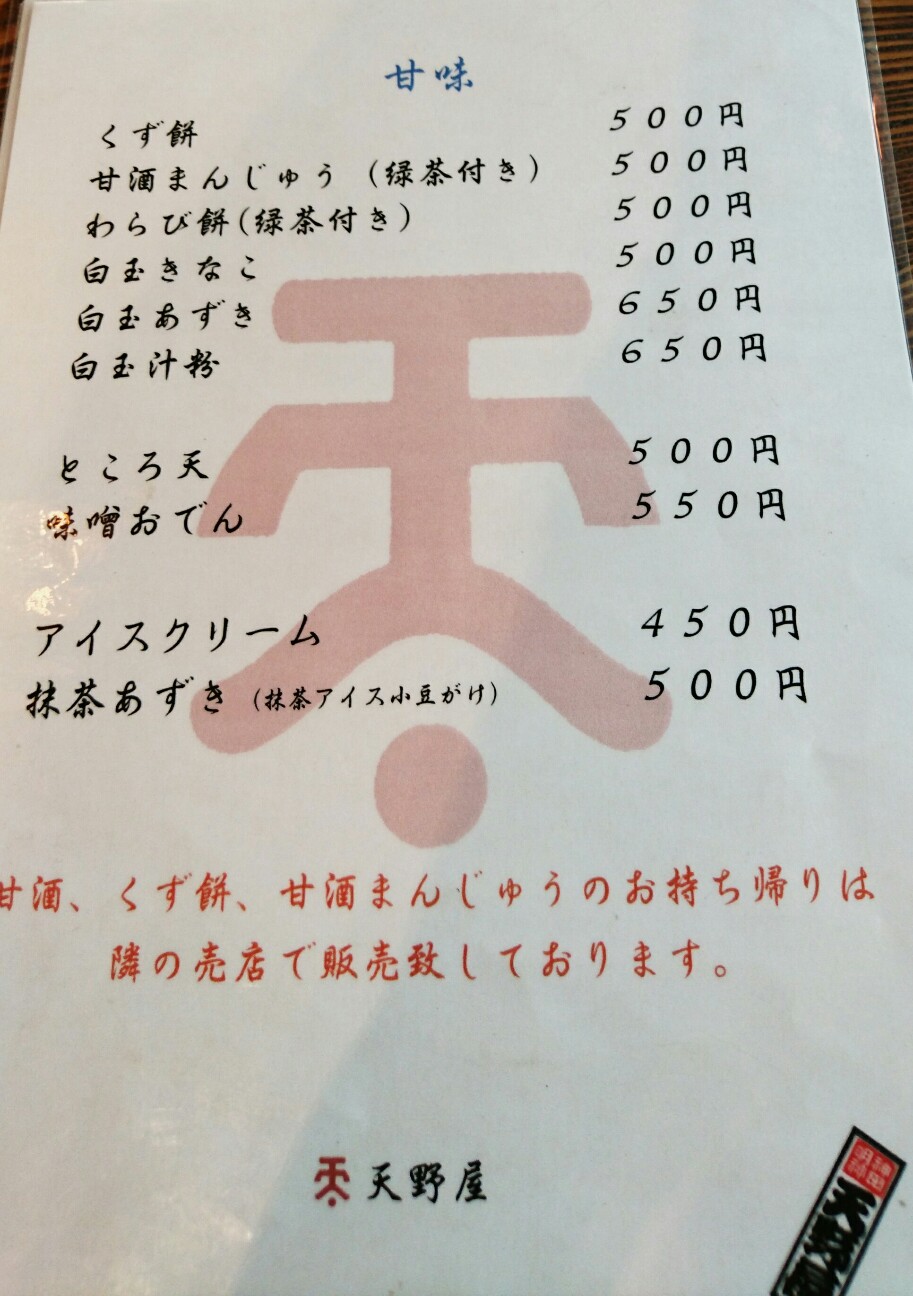 甘味
くず餅 500円
甘酒まんじゅう (緑茶付き) 500円
わらび餅(緑茶付き) 500円
白玉きなこ 500円
白玉あずき 650円
白玉汁粉 650円
ところ天 500円
味噌おでん 550円
アイスクリーム 450円
抹茶あずき (抹茶アイス小豆がけ) 500円
甘酒、くず餅、甘酒まんじゅうのお持ち帰りは
隣の売店で販売致しております。
天野屋
天野屋